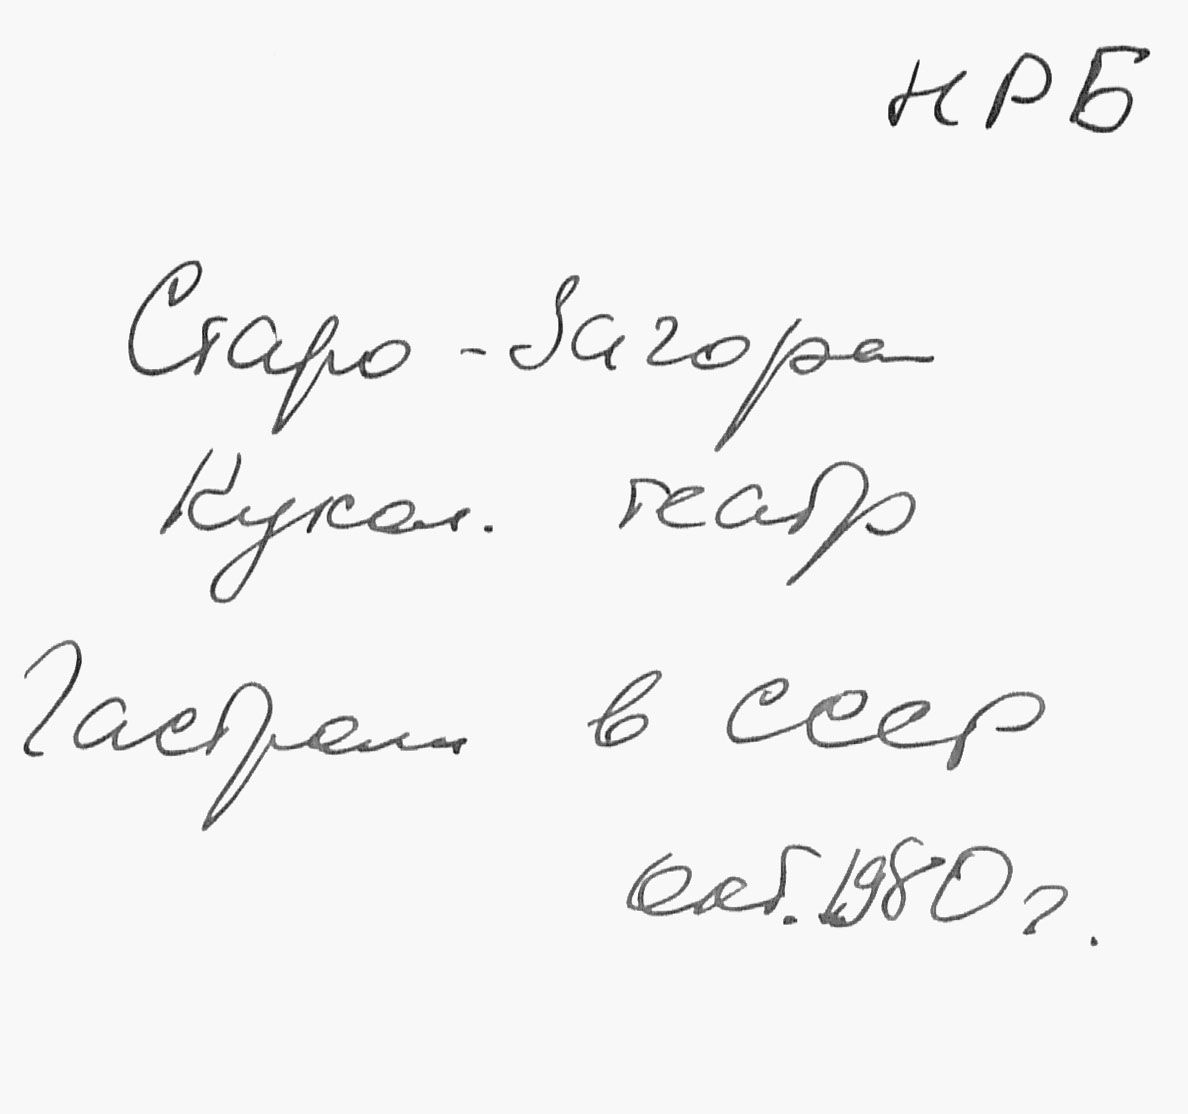 НРБ
Старо-Загора
Кукол. театр
Гастроли в СССР
окт. 1980 г.